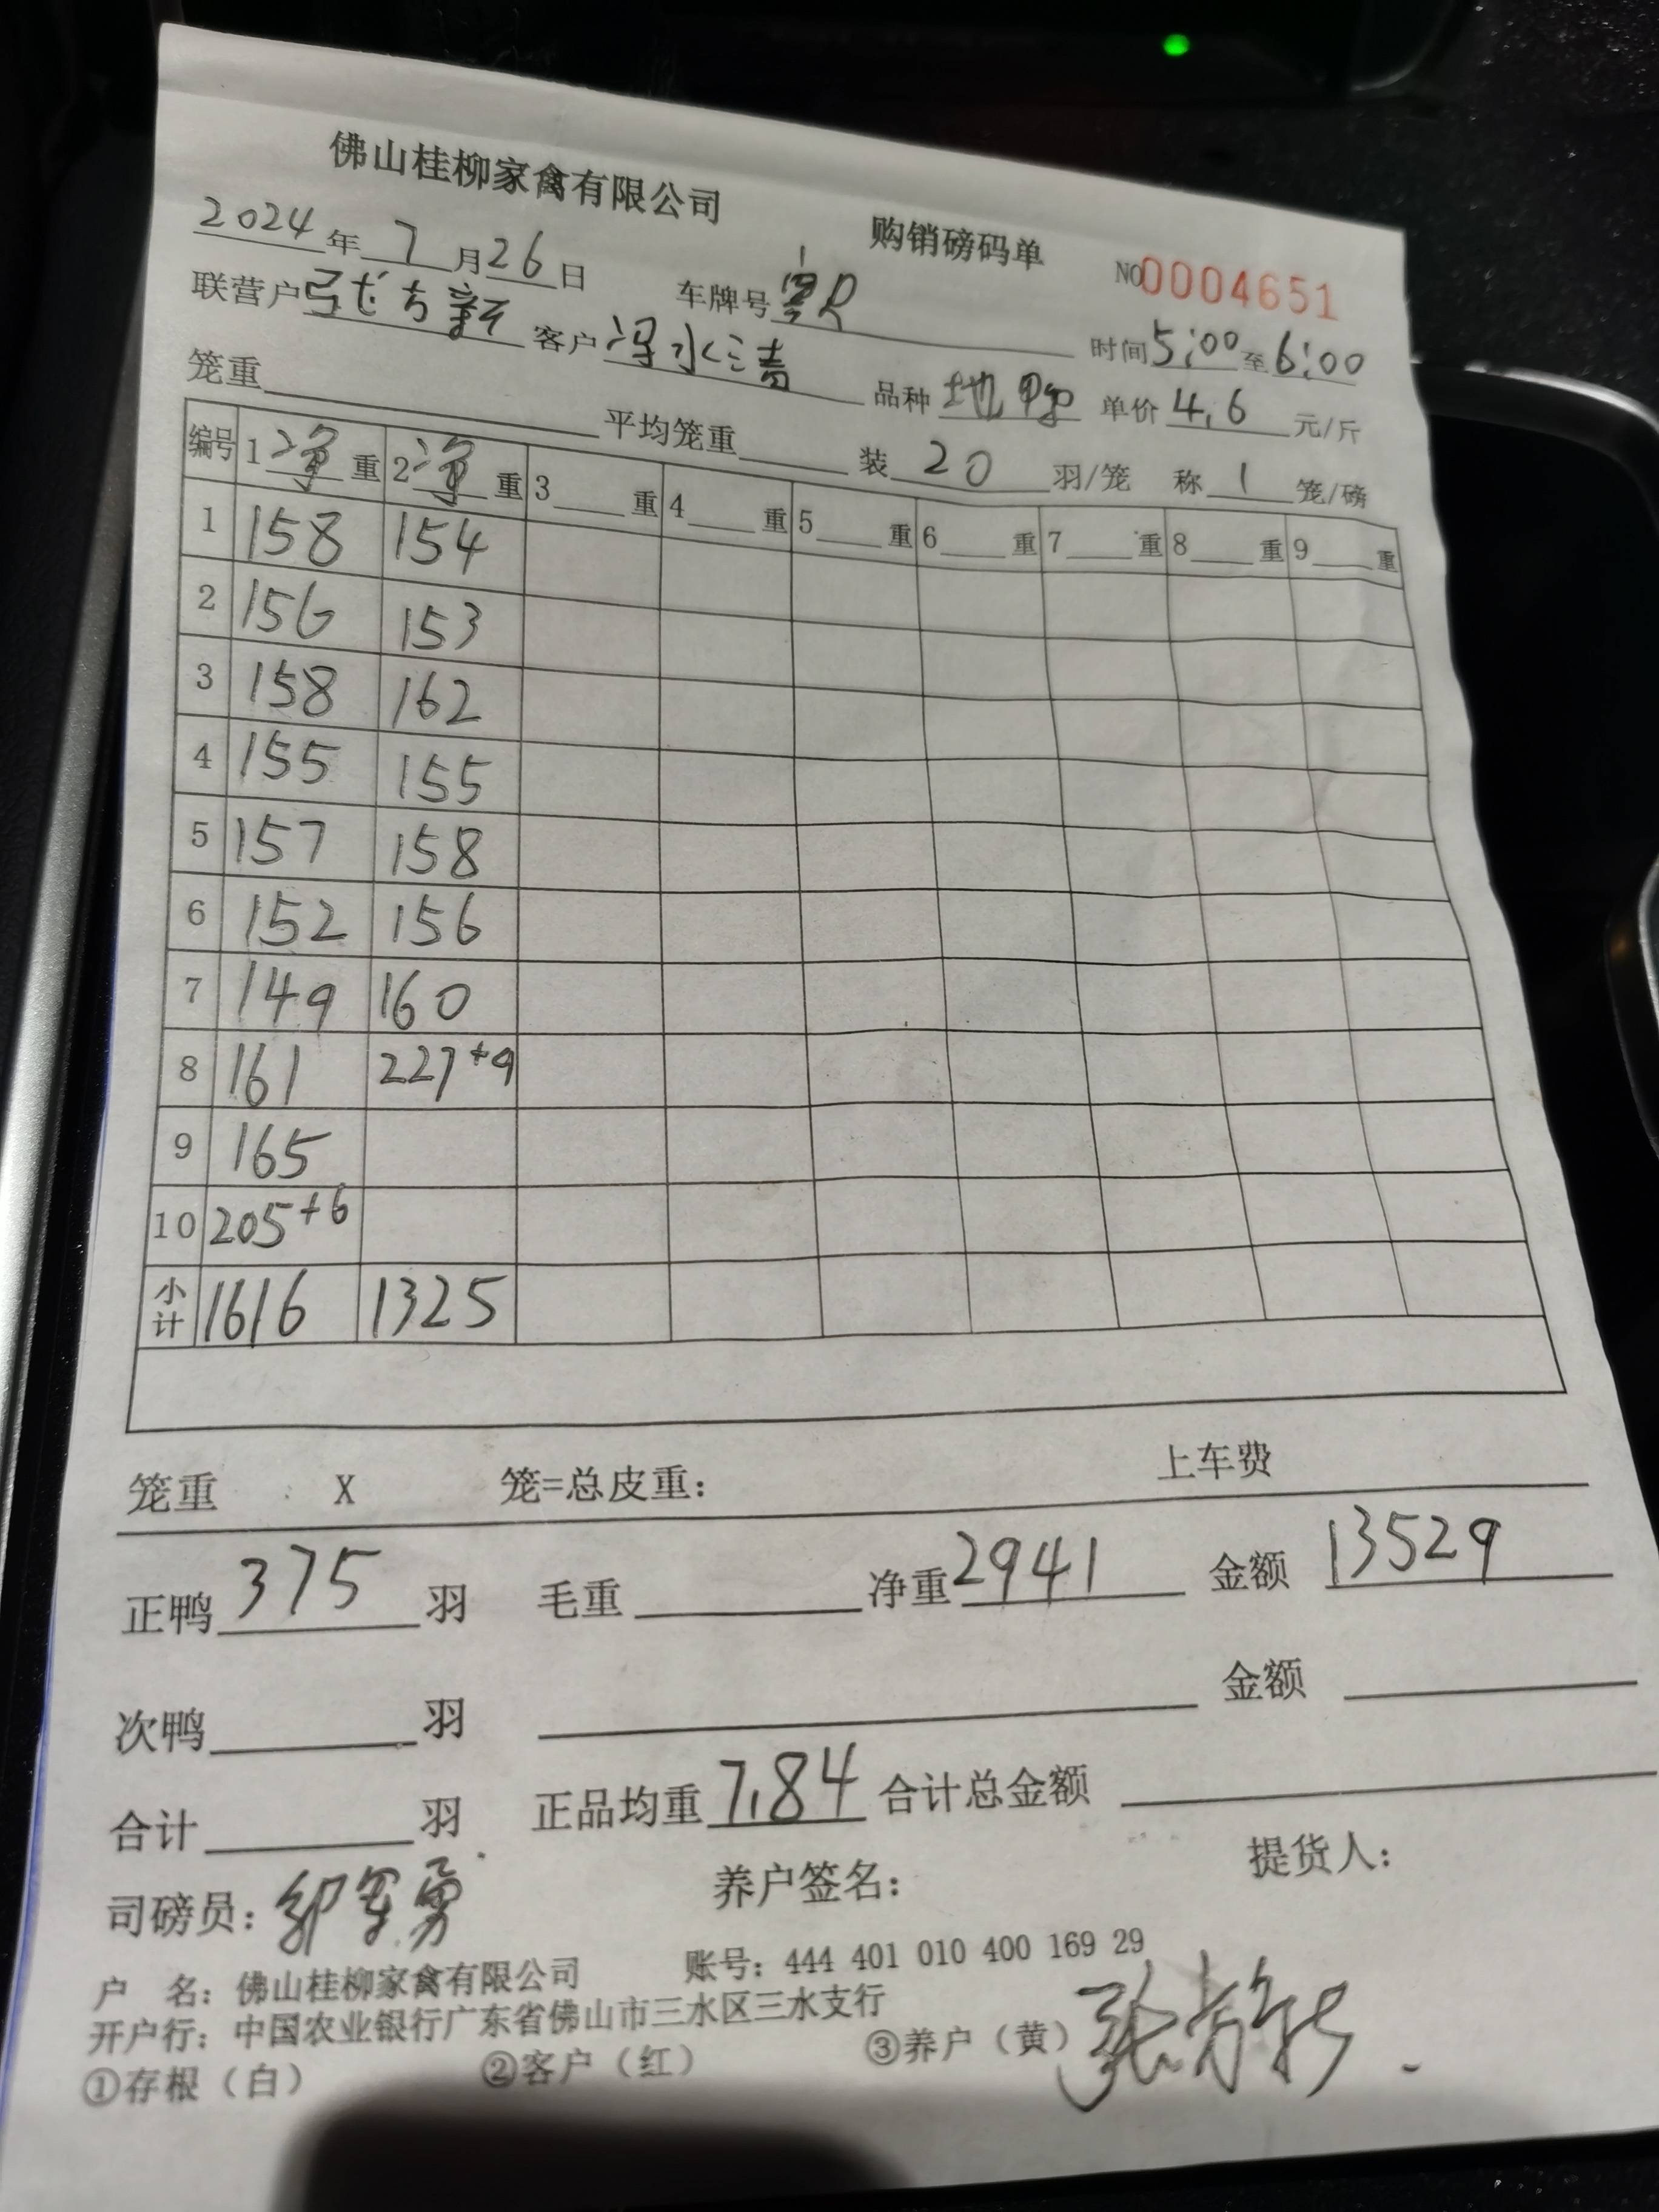 佛山桂柳家禽有限公司 购销磅码单
2024年7月26日 NO0004651
联营户张方新 车牌号 时间5:00至6:00
客户冯水清 品种地鸭 单价4.6元/斤
笼重 平均笼重 装20羽/笼 称1笼/磅
编号 1净重 2净重 3重 4重 5重 6重 7重 8重 9重
1 158 154
2 156 153
3 158 162
4 155 155
5 157 158
6 152 156
7 149 160
8 161 227+9
9 165
10 205+6
小计 1616 1325
笼重 X 笼=总皮重: 上车费
正鸭375羽 毛重 净重2941 金额13529
次鸭 羽 金额
合计 羽 正品均重7.84 合计总金额
司磅员:邹军勇 养户签名: 提货人:
户 名:佛山桂柳家禽有限公司 账号:444 401 010 400 169 29
开户行:中国农业银行广东省佛山市三水区三水支行
①存根(白) ②客户(红) ③养户(黄) 张方新